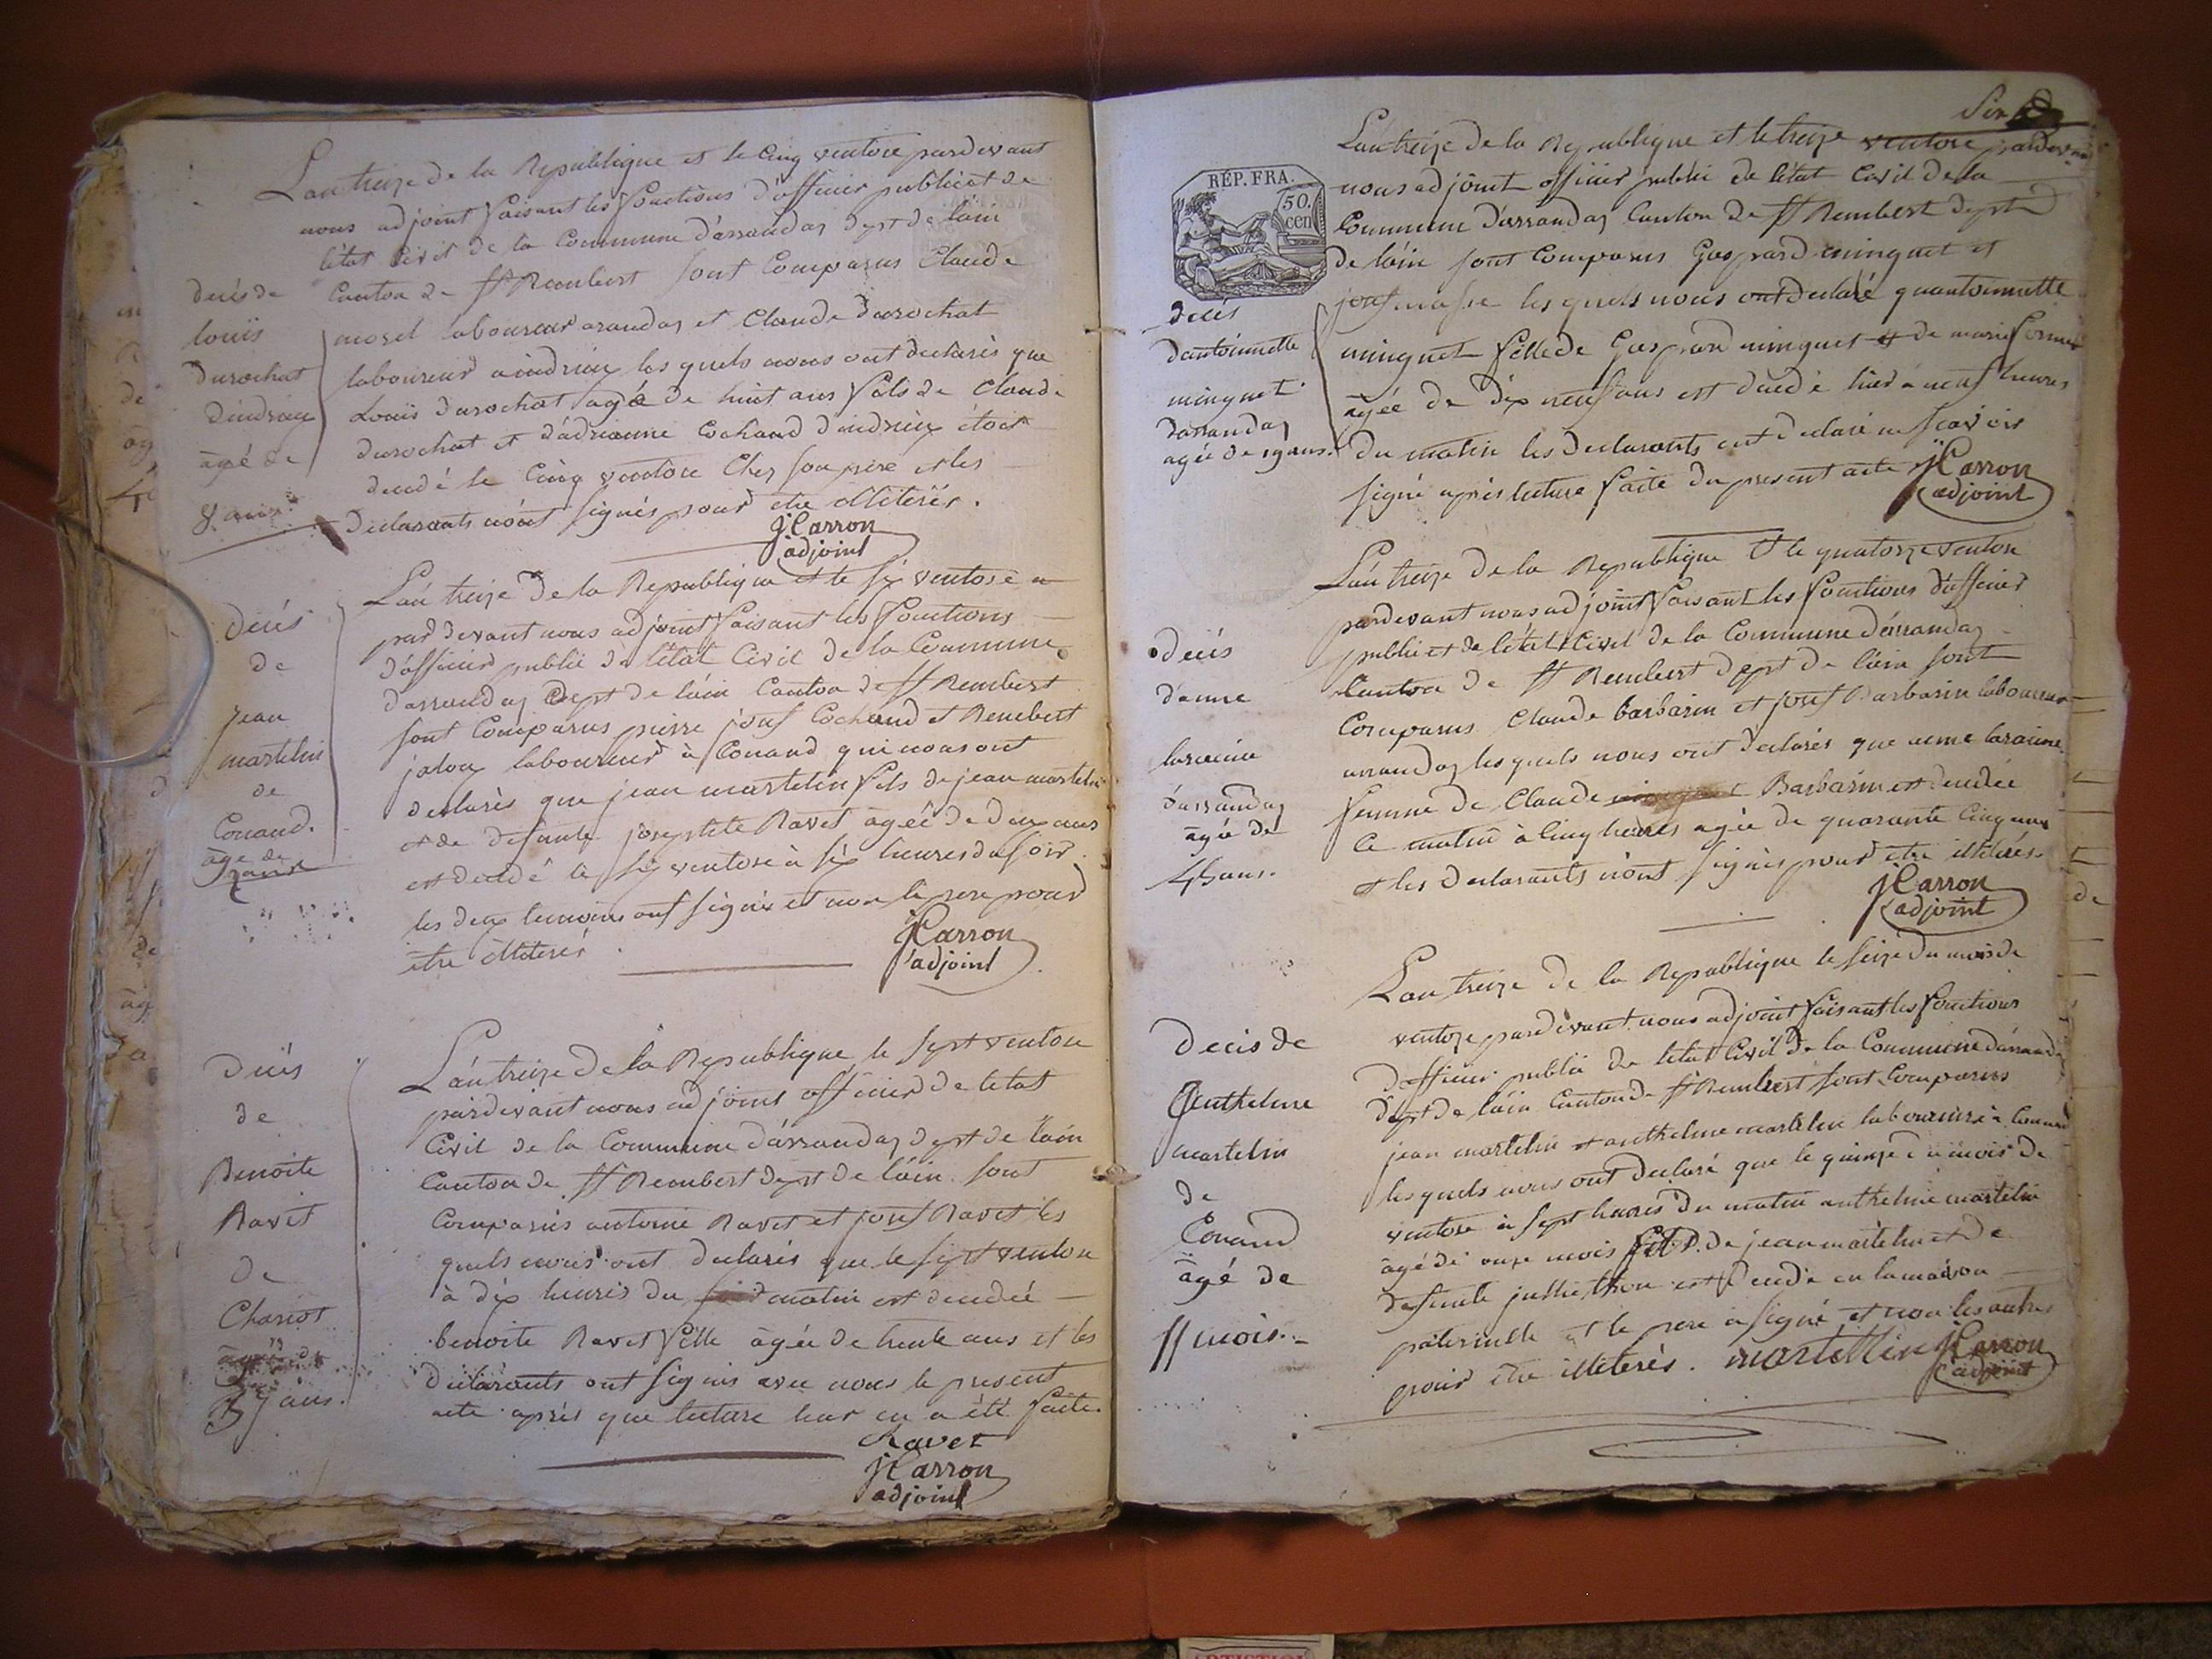 L'an treize de la Republique et le Cinq ventose pardevant
nous adjoint faisant les fonctions d'officier public et de
l'état Civil de la Commune d'arrandas dept de l'ain
Canton de St Rembert sont Comparus Claude
morel laboureur arandas et Claude Durochat
laboureur aindrieu les quels nous ont declarés que
Louis Durochat agé de huit ans fils de Claude
Durochat et d'adrianne Cochand d'indrieu étoit
decedé le Cinq ventose Chez son pere et les
declarants n'ont signés pour etre illiterés.
jCarron
adjoint
decés de
louis
Durochat
Dindrieu
agé de
8 ans
L'an treize de la Republique et le six ventose
pardevant nous adjoint faisant les fonctions
d'officier public de l'état Civil de la Commune
darrandas Dept de l'ain Canton de St Rembert
sont Comparus pierre josef Cochand et Rembert
jaloux laboureur à Conand qui nous ont
declarés que jean martelin fils de jean martelin
et de defunte josephte Ravet agée de deux ans
est decedé le six ventose à six heures du soir
les deux temoins ont signés et non le pere pour
etre illiterés
jCarron
adjoint
Decés
de
jean
martelin
de
Conand.
age de
2 ans
L'an treize de la Republique le sept ventose
pardevant nous adjoint officier de letat
Civil de la Commune d'arrandas dept de l'ain
Canton de St Rembert dept de l'ain sont
Comparus antoine Ravet et josef Ravet les
quels nous ont declarés que le sept ventose
à dix heures du matin est decedée
benoite Ravet fille agée de trente ans et les
declarants ont signés avec nous le present
acte après que lecture leur en a été faite.
Ravet
jCarron
adjoint
Decés
de
Benoite
Ravet
de
Chariot
ans.
L'an treize de la Republique et le treize ventose pardevant
nous adjoint officier public de l'état Civil de la
Commune d'arrandas Canton de St Rembert dept
de l'ain sont Comparus Gaspard minguet et
les quels nous ont declaré quantoinette
minguet fille de Gaspard minguet et de marie
agée de dix neuf ans est decedé hier à neuf heures
du matin les declarants ont declaré ne scavoir
signé après lecture faite du present acte jCarron
adjoint
REP. FRA.
50.
cen
decés
dantoinette
minguet
darrandas
agée de 19 ans.
L'an treize de la Republique et le quatorze ventose
pardevant nous adjoint faisant les fonctions d'officier
public et de l'état Civil de la Commune d'arrandas
Canton de St Rembert dept de l'ain sont
Comparus Claude barbarin et josef Barbarin laboureur
arrandas les quels nous ont declarés que anne laracine
femme de Claude Barbarin est decedée
le matin à Cinq heures agée de quarante Cinq ans
et les declarants n'ont signés pour etre illiterés.
jCarron
adjoint
decés
d'anne
laracine
d'arrandas
agée de
45 ans.
L'an treize de la Republique le seize du mois de
ventoze pardevant nous adjoint faisant les fonctions
d'officier public de letat Civil de la Commune d'arrandas
dept de l'ain Canton de St Rembert sont Comparus
jean martelin et anthelme martelin laboureurs à Conand
les quels nous ont declaré que le quinze du mois de
ventose à sept heures du matin anthelme martelin
agé de onze mois fils de jean martelin et de
defunte est decedé en la maison
paternelle et le pere a signé et non les autres
pour etre illiterés. martellin jCarron
adjoint
Decés de
anthelme
martelin
de
Conand
agé de
11 mois.